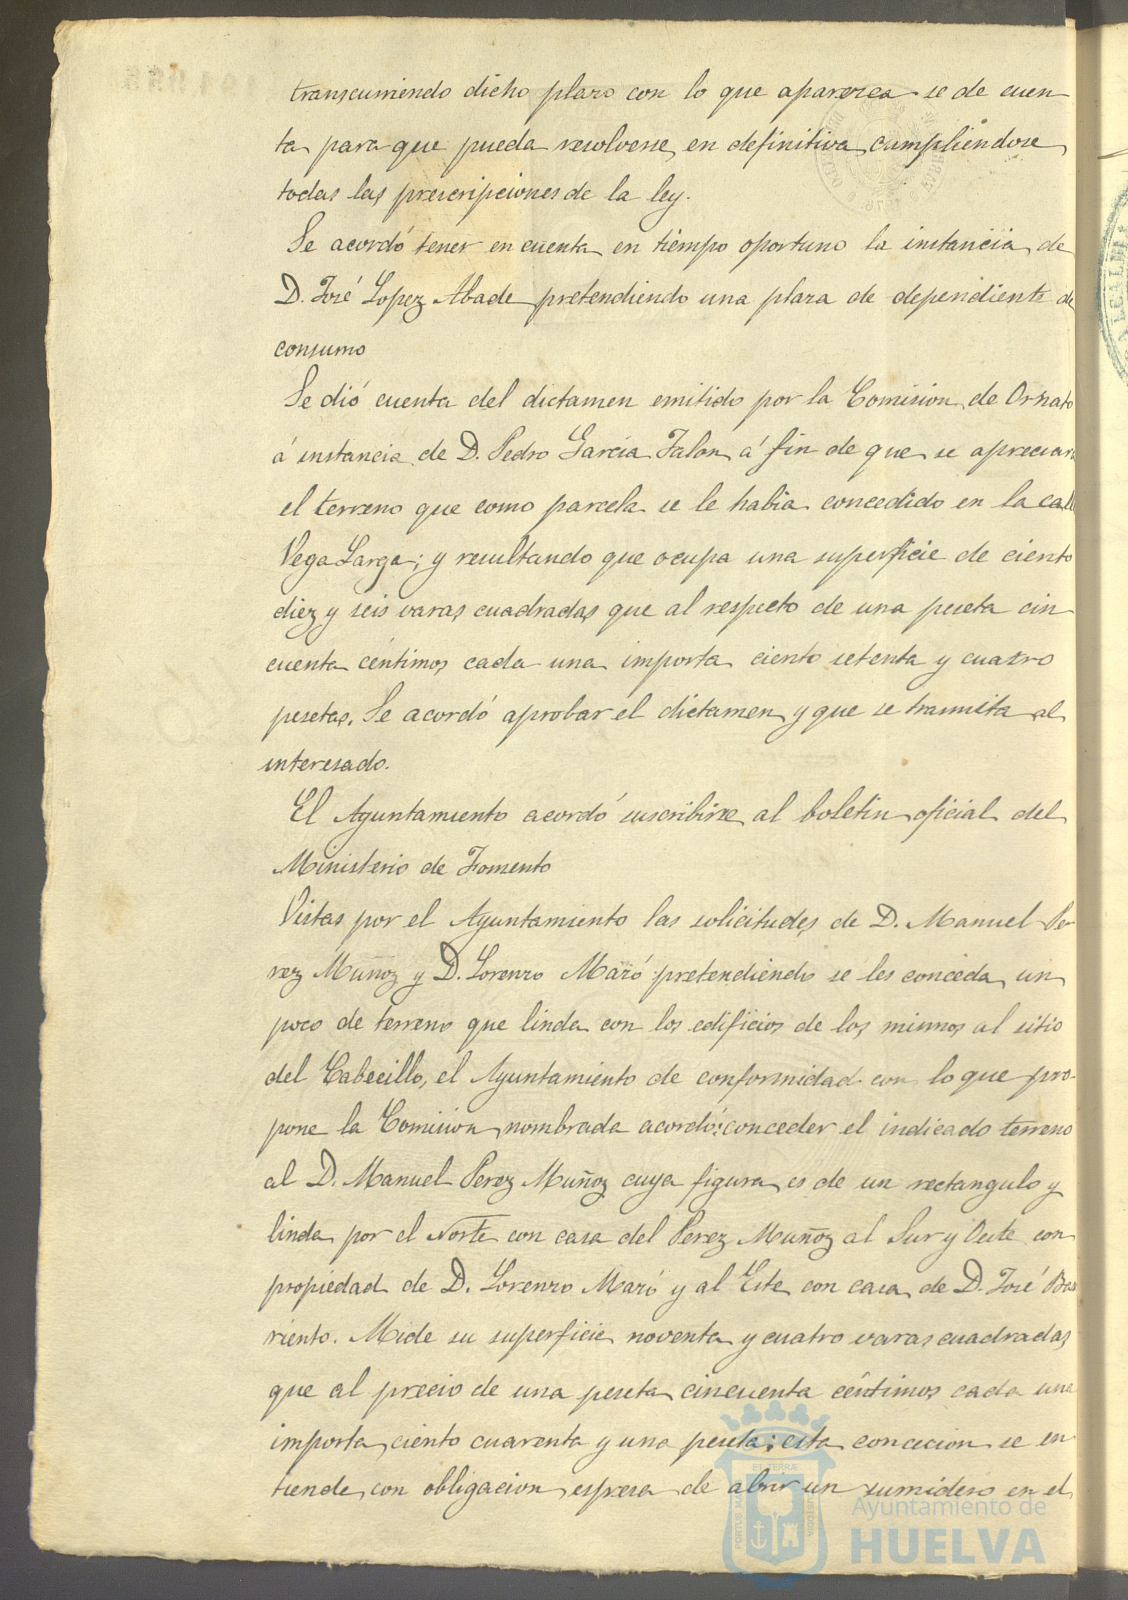 transcurriendo dicho plazo con lo que aparezca se de cuen
ta para que pueda resolverse en definitiva cumpliendose
todas las prescripciones de la ley.
Se acordó tener en cuenta en tiempo oportuno la instancia de
D. José Lopez Abade pretendiendo una plaza de dependiente de
consumo
Se dió cuenta del dictamen emitido por la Comision de Ornato
á instancia de D. Pedro Garcia Jalon á fin de que se apreciara
el terreno que como parcela se le habia concedido en la calle
Vega Larga; y resultando que ocupa una superficie de ciento
diez y seis varas cuadradas que al respecto de una peseta cin
cuenta céntimos cada una importa ciento setenta y cuatro
pesetas. Se acordó aprobar el dictamen y que se tramita al
interesado.
El Ayuntamiento acordó suscribirse al boletin oficial del
Ministerio de Fomento
Vistas por el Ayuntamiento las solicitudes de D. Manuel Pe
rez Muñoz y D. Lorenzo Mazó pretendiendo se les conceda un
poco de terreno que linda con los edificios de los mismos al sitio
del Cabecillo, el Ayuntamiento de conformidad con lo que pro-
pone la Comision nombrada acordó: conceder el indicado terreno
al D. Manuel Perez Muñoz cuya figura es de un rectangulo y
linda por el Norte con casa del Perez Muñoz al Sur y Oeste con
propiedad de D. Lorenzo Mazó y al Este con casa de D. José Ba
rriento. Mide su superficie noventa y cuatro varas cuadradas
que al precio de una peseta cincuenta céntimos cada una
importa ciento cuarenta y una peseta; esta concecion se en
tiende con obligacion espresa de abrir un sumidero en el
Ayuntamiento de
HUELVA